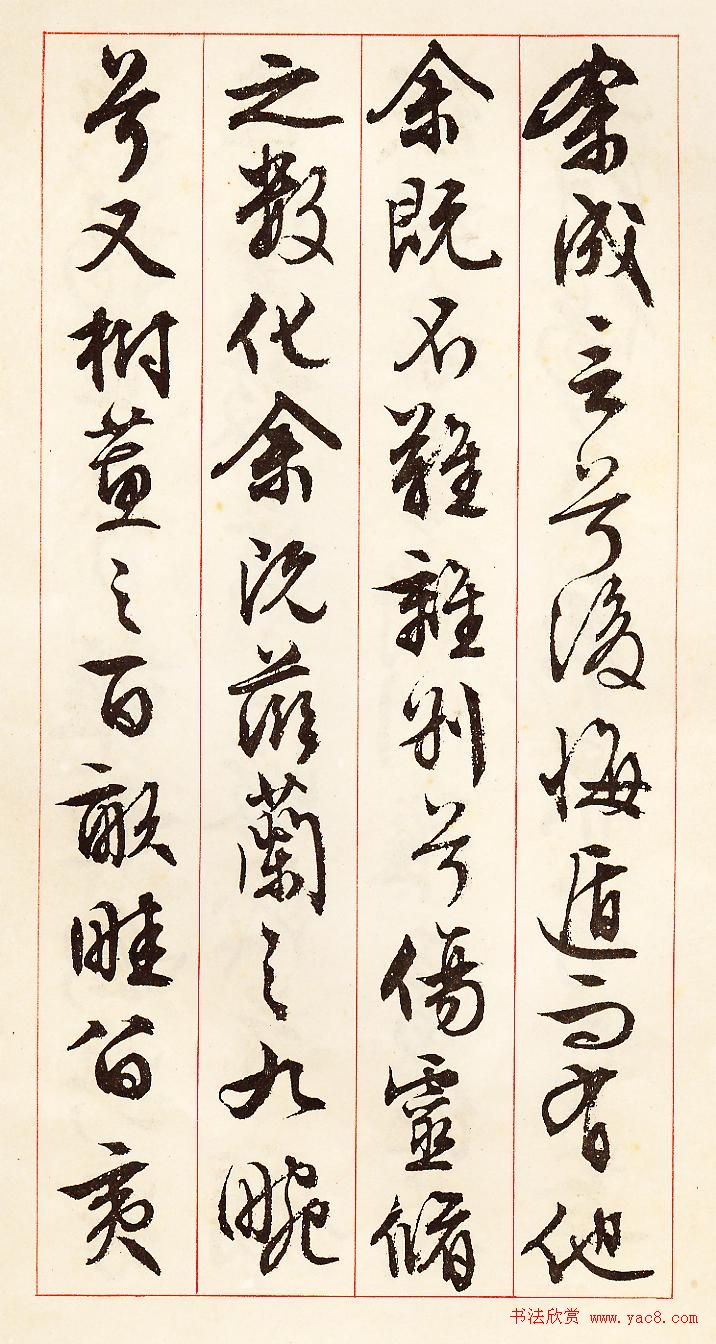 余成言兮後悔遁而有他
余既不難離別兮傷靈脩
之數化余既滋蘭之九畹
兮又樹蕙之百畝畦留夷
书法欣赏 www.yac8.com